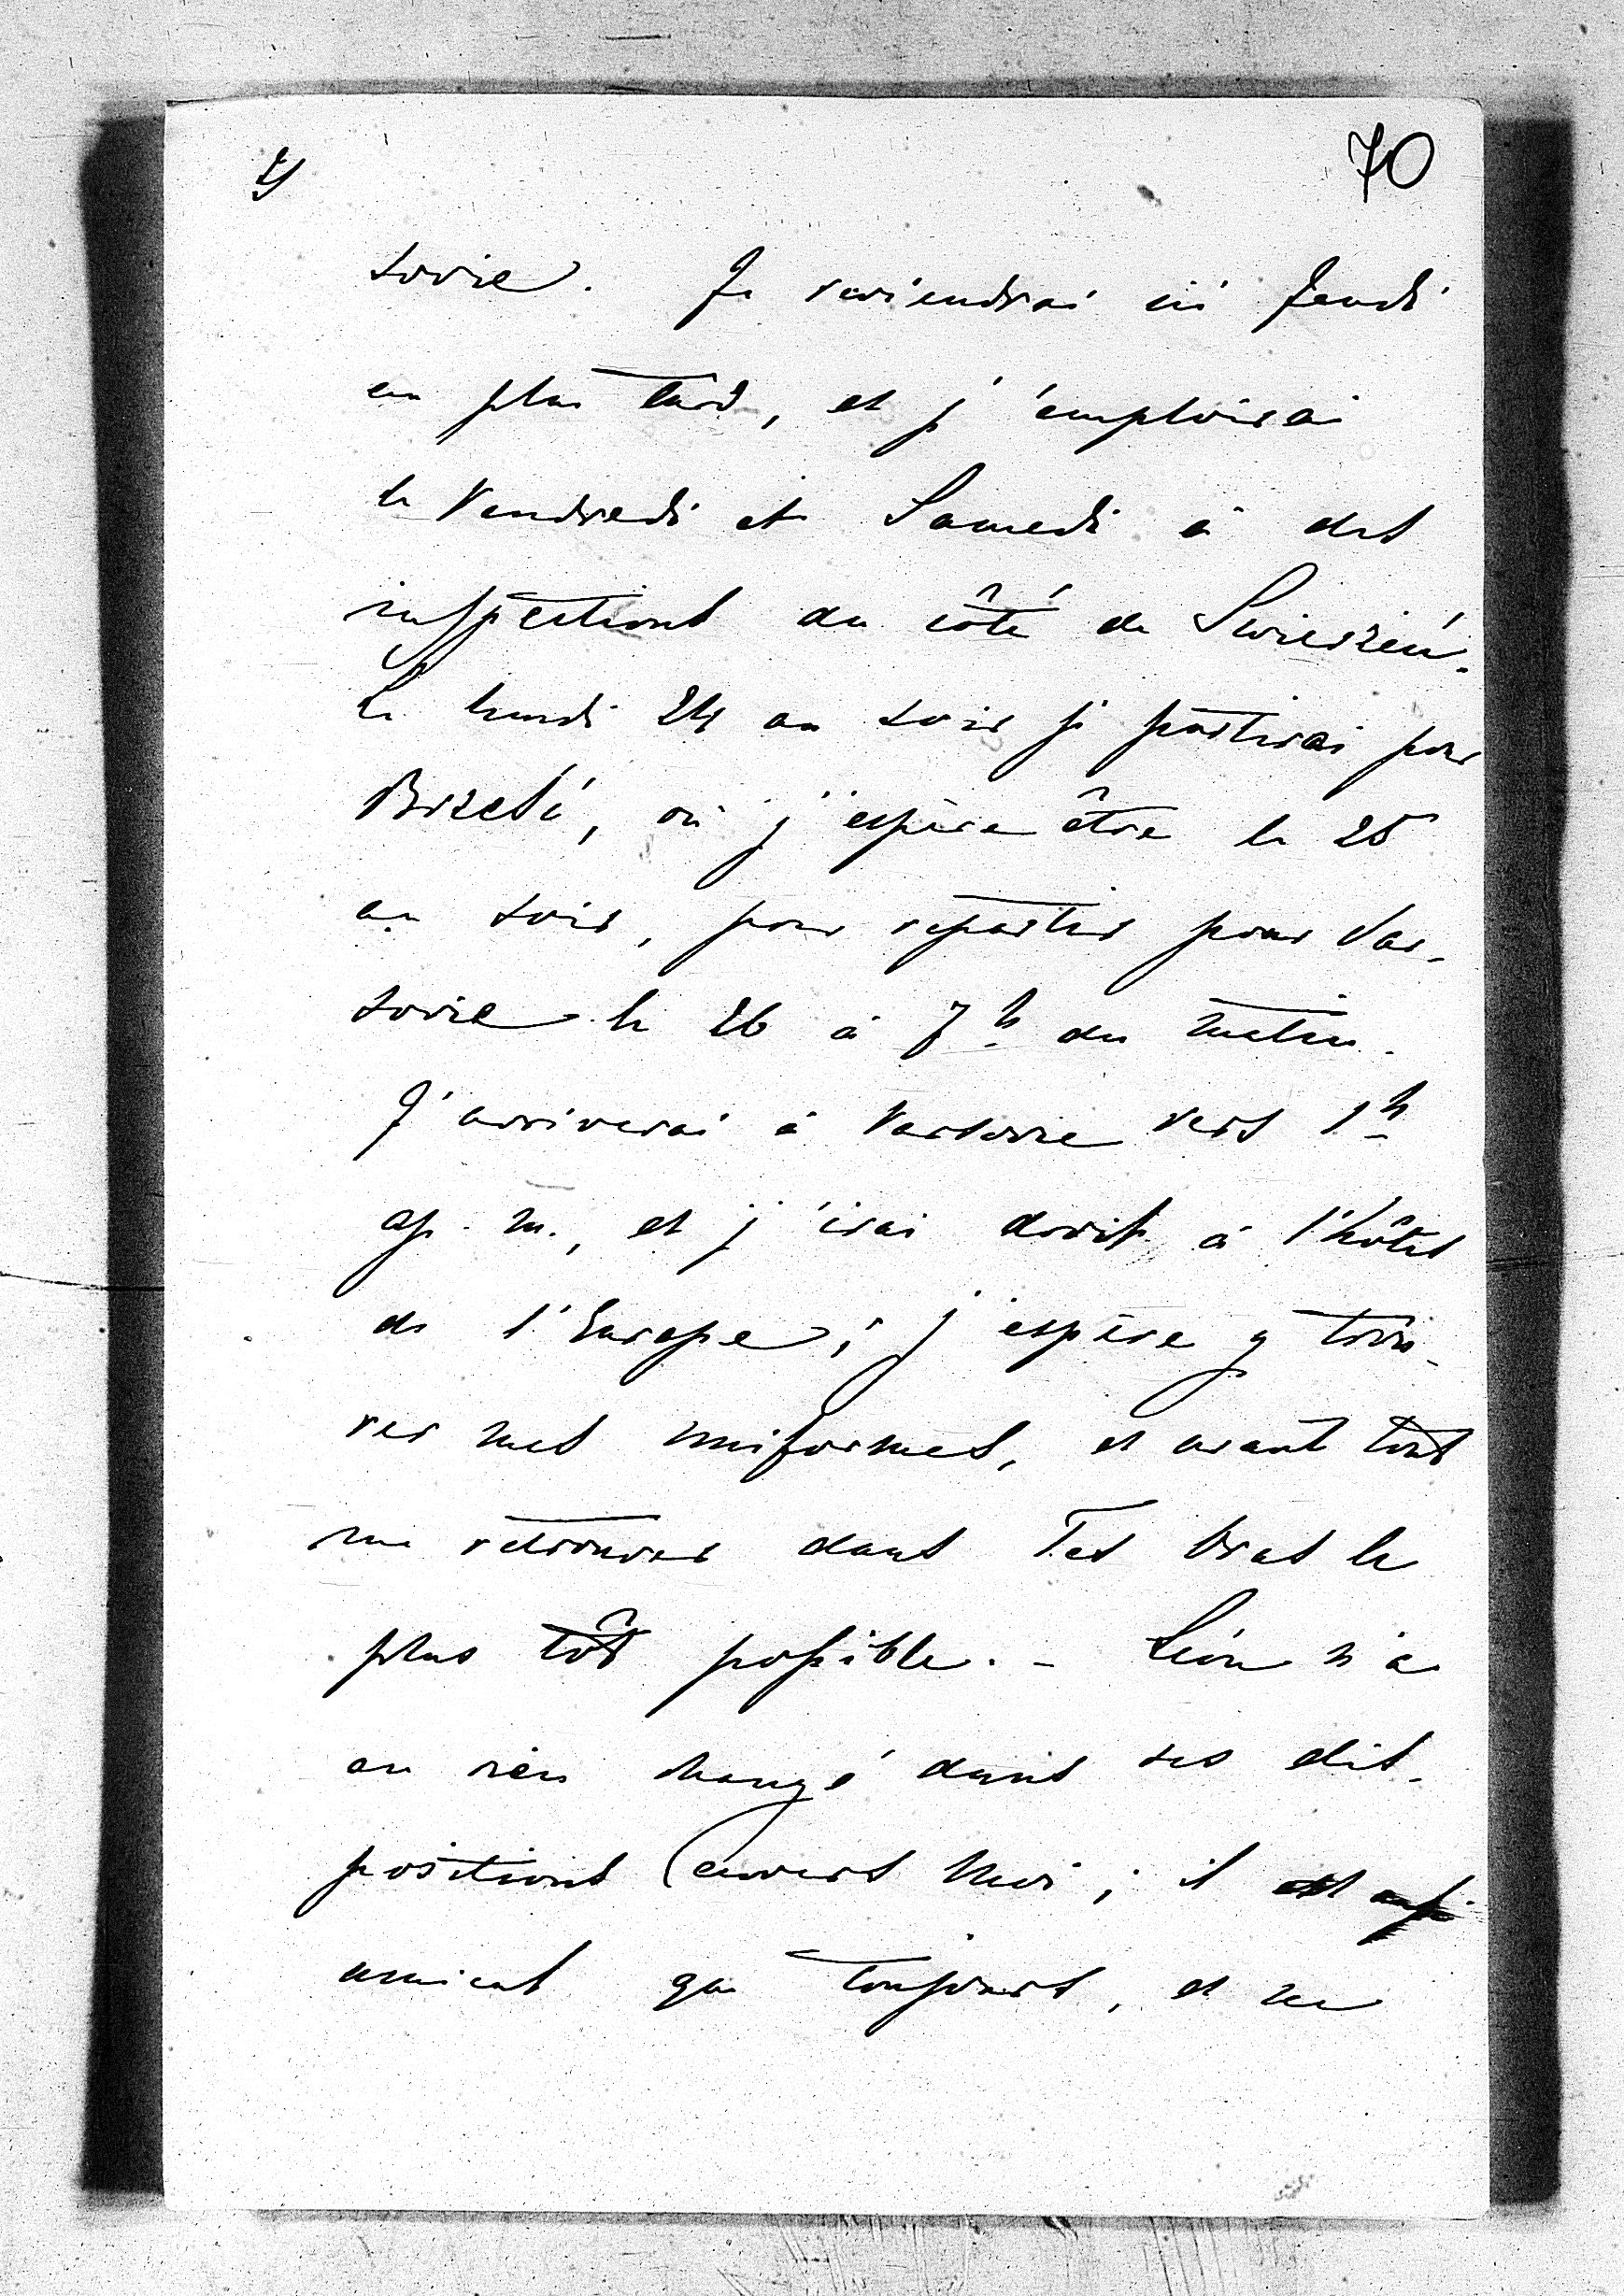 70
sovie. Je reviendrai ici Jeudi
au plus tard, et j'emploirai
le Vendredi et Samedi à des
inspections du côté de Swierzeń.
Le lundi 24 au soir je partirai pour
Brześć, où j'espère être le 25
au soir, pour repartir pour Var-
sovie le 26 à 7h du matin.
J'arriverai à Varsovie vers 1h
ap. m., et j'irai droit à l'hôtel
de l'Europe; j'espère y trou-
ver mes uniformes, et avant tout
me retrouver dans Tes bras le
plus tôt possible. - Léon n'a
en rien changé dans ses dis-
positions envers moi; il est aussi
amical que toujours, et ne